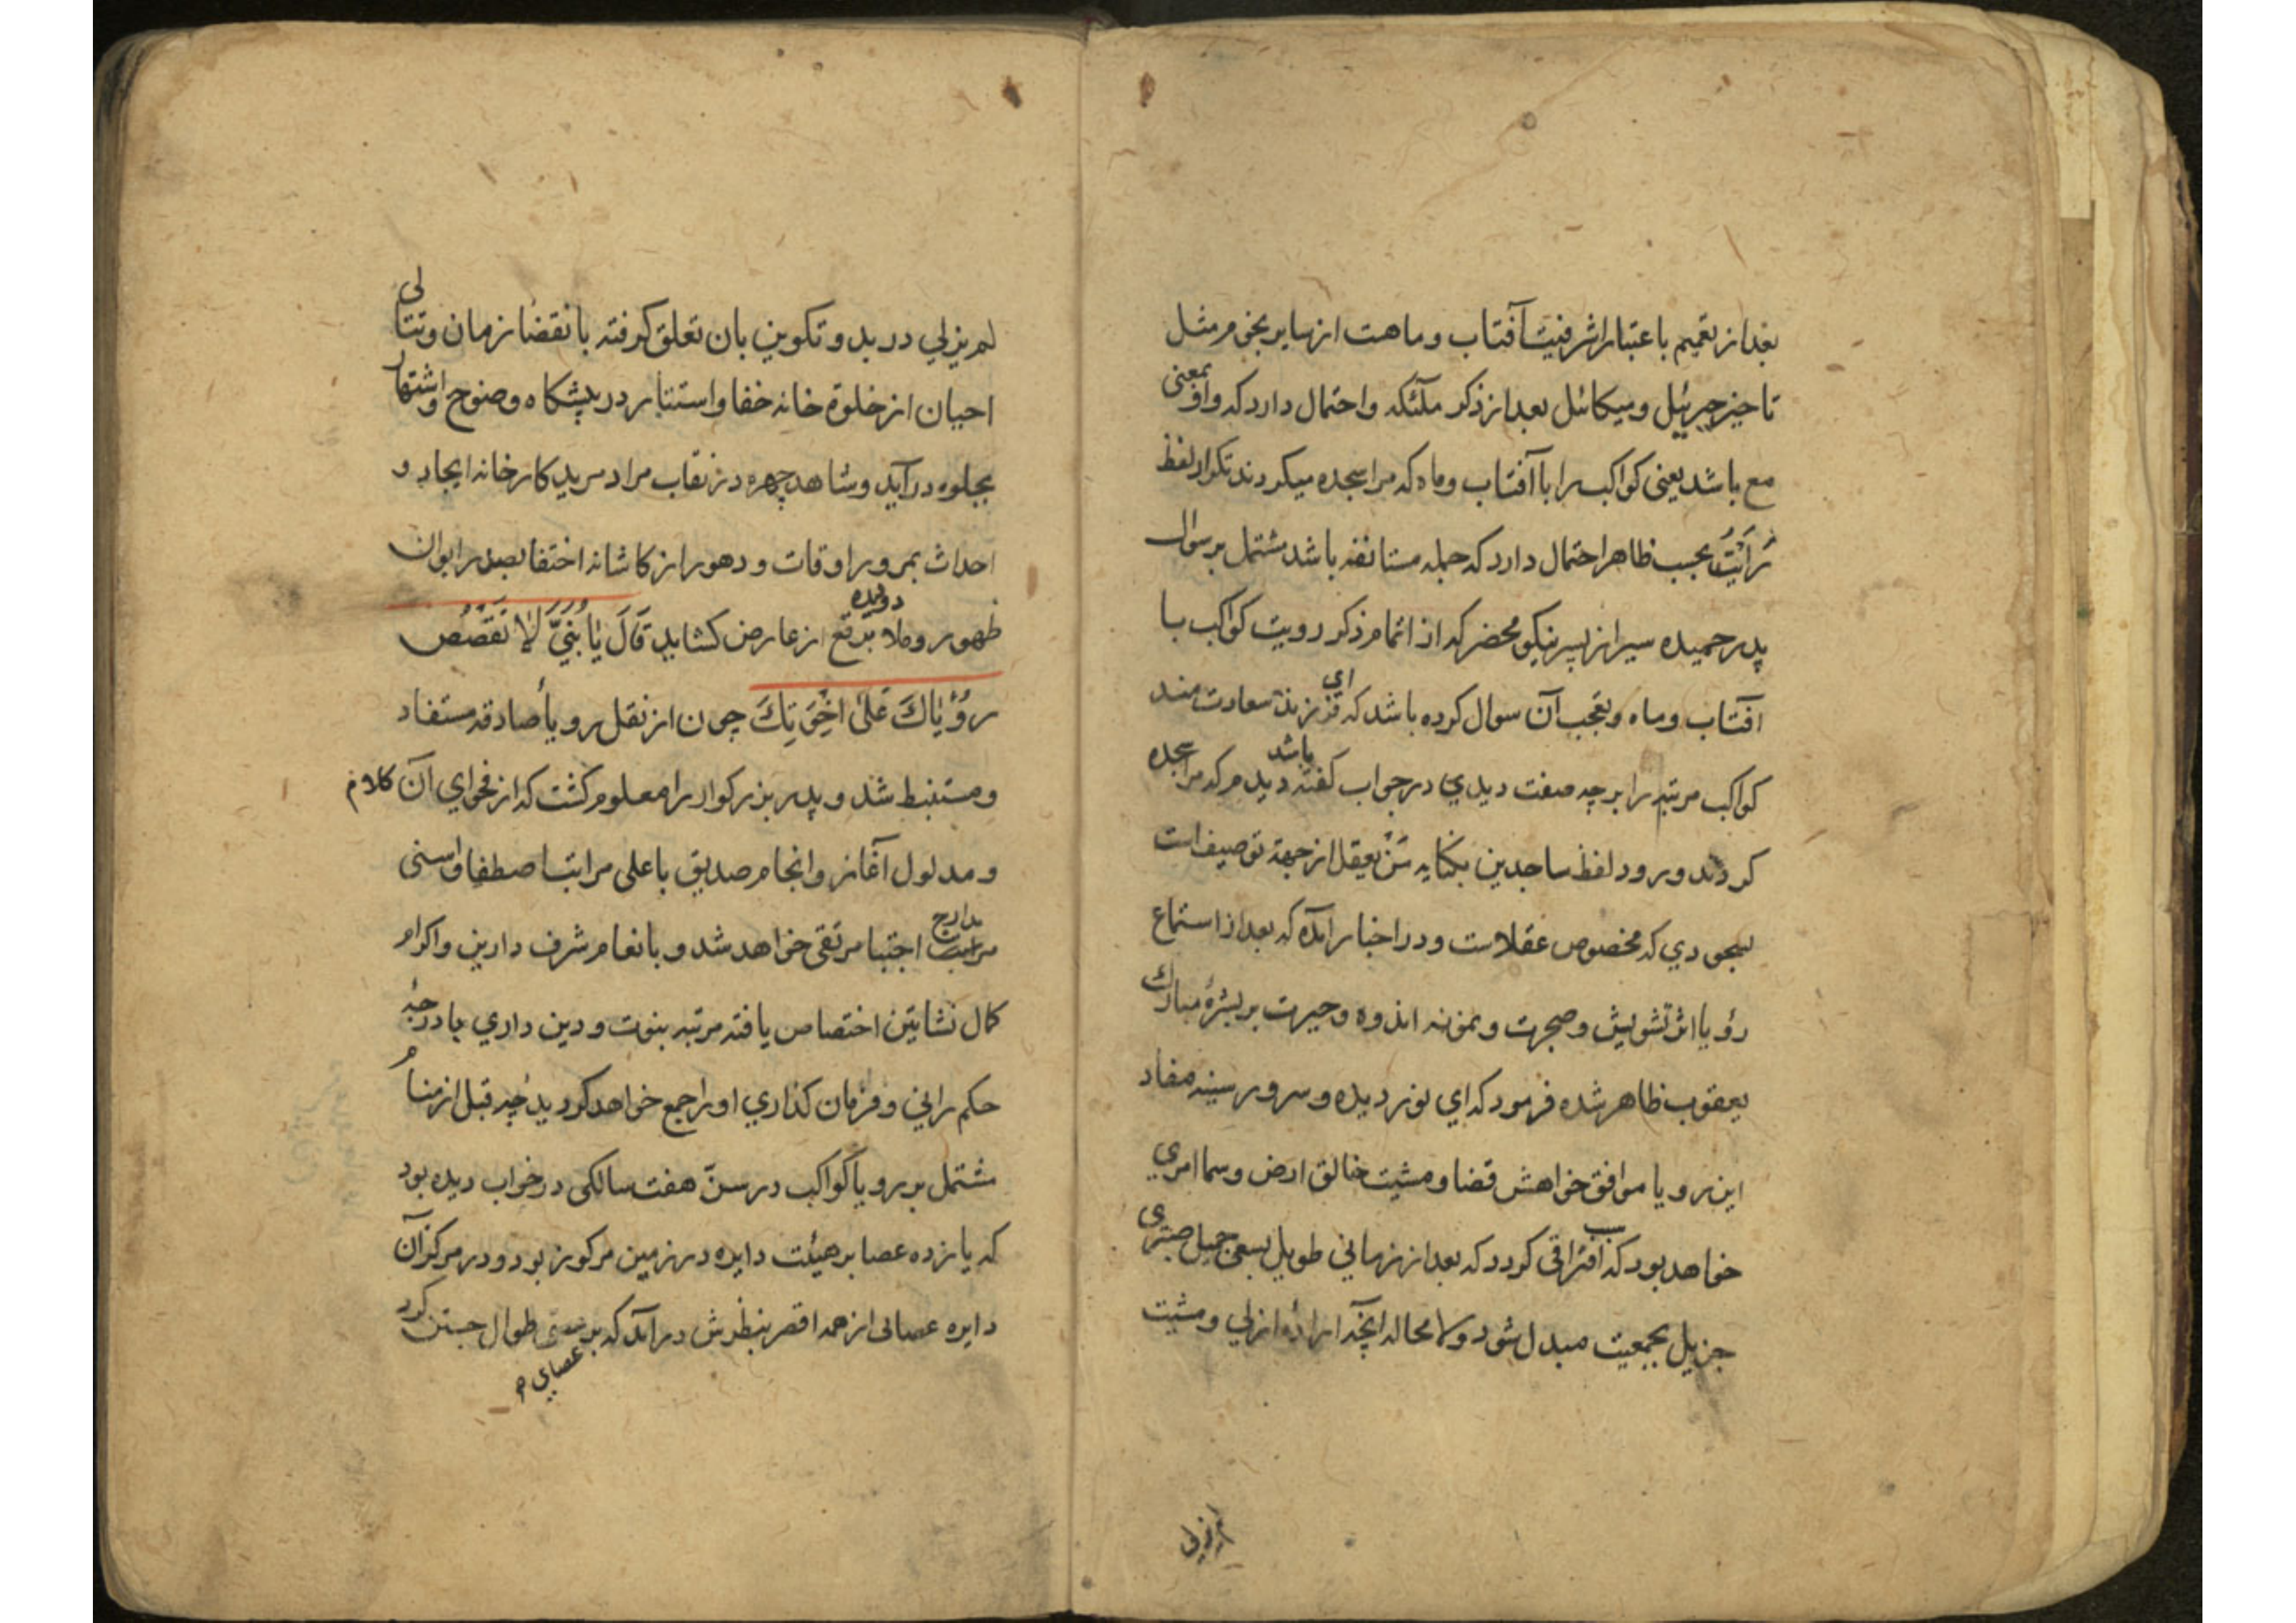 بعد از تعمیم باعتبار اشرفیت آفتاب و ماهست از سایر نجوم مثل
تاخیر جبرئیل و میکائیل بعد از ذکر ملئکه و احتمال دارد که واو بمعنی
مع باشد یعنی کواکب را با آفتاب و ماه که مرا سجده میکردند تکرار لفظ
رَاَیْتُ بحسب ظاهر احتمال دارد که جمله مستانفه باشد مشتمل بر سوال
پدر حمیده سیر از پسر نیکو محضر که از اتمام ذکر رویت کواکب با
افتاب و ماه و تعجب آن سوال کرده باشد که ای فرزند سعادت مند
کواکب مرتبه را بر چه صفت دیدی در جواب کفته باشد دیدم که مرا سجده
کردند و ورود لفظ ساجدین بکنایه مَنْ یعقل از جهة توصیف است
بسجودی که مخصوص عقلاست و در اخبار آمده که بعد از استماع
رؤیا اثر تشویش و ضجرت و نمونه اندوه و حیرت بر بشرهٔ مبارک
یعقوب ظاهر شده فرمود که ای نور دیده و سرور سینه مفاد
این رویا موافق خواهش قضا و مشیت خالق ارض و سما امری
خواهد بود که افتراقی کردد که بعد از زمانی طویل بسعی جمیل صبری
جزیل بجمعیت مبدل شود و لا محاله آنچه ارادهٔ ازلی و مشیت
لم یزلی
لم یزلی در بدو تکوین بان تعلق کرفته بانقضا زمان و تتالی
احیان از خلوة خانه خفا و استتار در پیشکاه وضوح و اشتهار
بجلوه در آید و شاهد چهره در نقاب مراد مرید کارخانه ایجاد و
احداث بمرور اوقات و دهور از کاشانه اختفا بصدر ایوان
ظهور و ملا دویده برقع از عارض کشاید قَالَ یَا بُنَیَّ لَا تَقْصُصْ
رُؤْیَاكَ عَلَىٰ اِخْوَتِكَ چون از نقل رویأ صادقه مستفاد
و مستنبط شد و پدر بزرکوار را معلوم کشت که از فحوای آن کلام
و مدلول آغاز و انجام صدیق باعلی مراتب اصطفا و اسنی
مدارج اجتبا مرتقی خواهد شد و بانعام شرف دارین و اکرام
کمال نشاتین اختصاص یافته مرتبه بنوت و دین داری با درجهٔ
حکم رانی و فرمان کذاری او راجع خواهد کردید چه قبل از منام
مشتمل بر رویأ کواکب در سنّ هفت سالکی در خواب دیده بود
که یازده عصا بر هیئت دایره در زمین مرکوز بود و در مرکز آن
دایره عصائی از همه اقصر بنظرش در آمد که بر عصای طوال جستن کرد